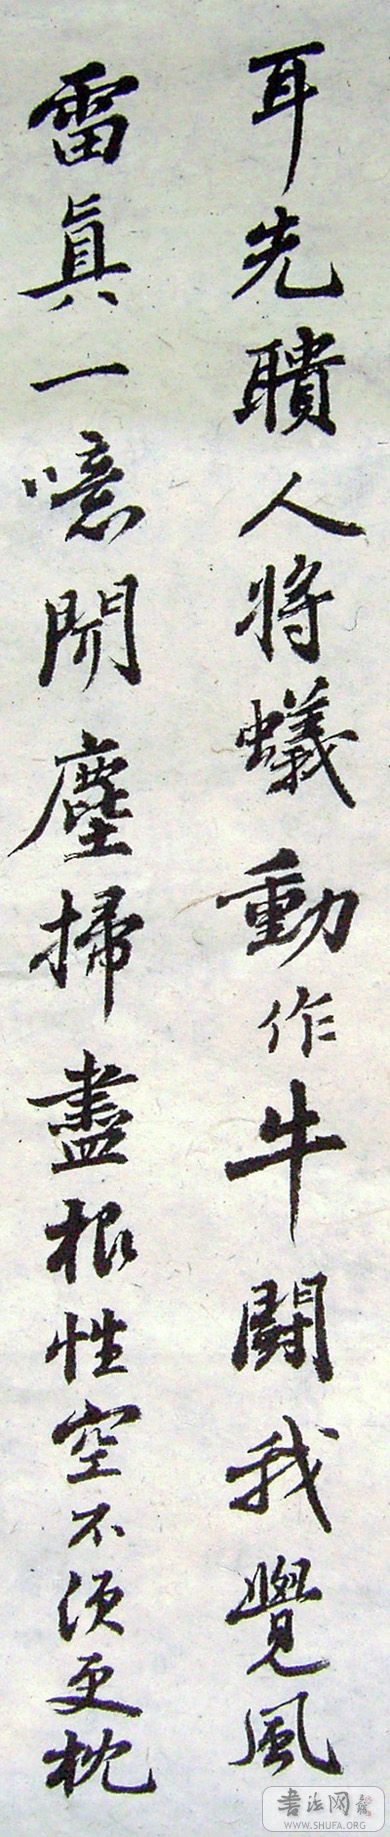 耳先聵人將蟻動作牛鬪我覺風
雷真一噫閒塵掃盡根性空不須更枕
書法网
WWW.SHUFA.ORG